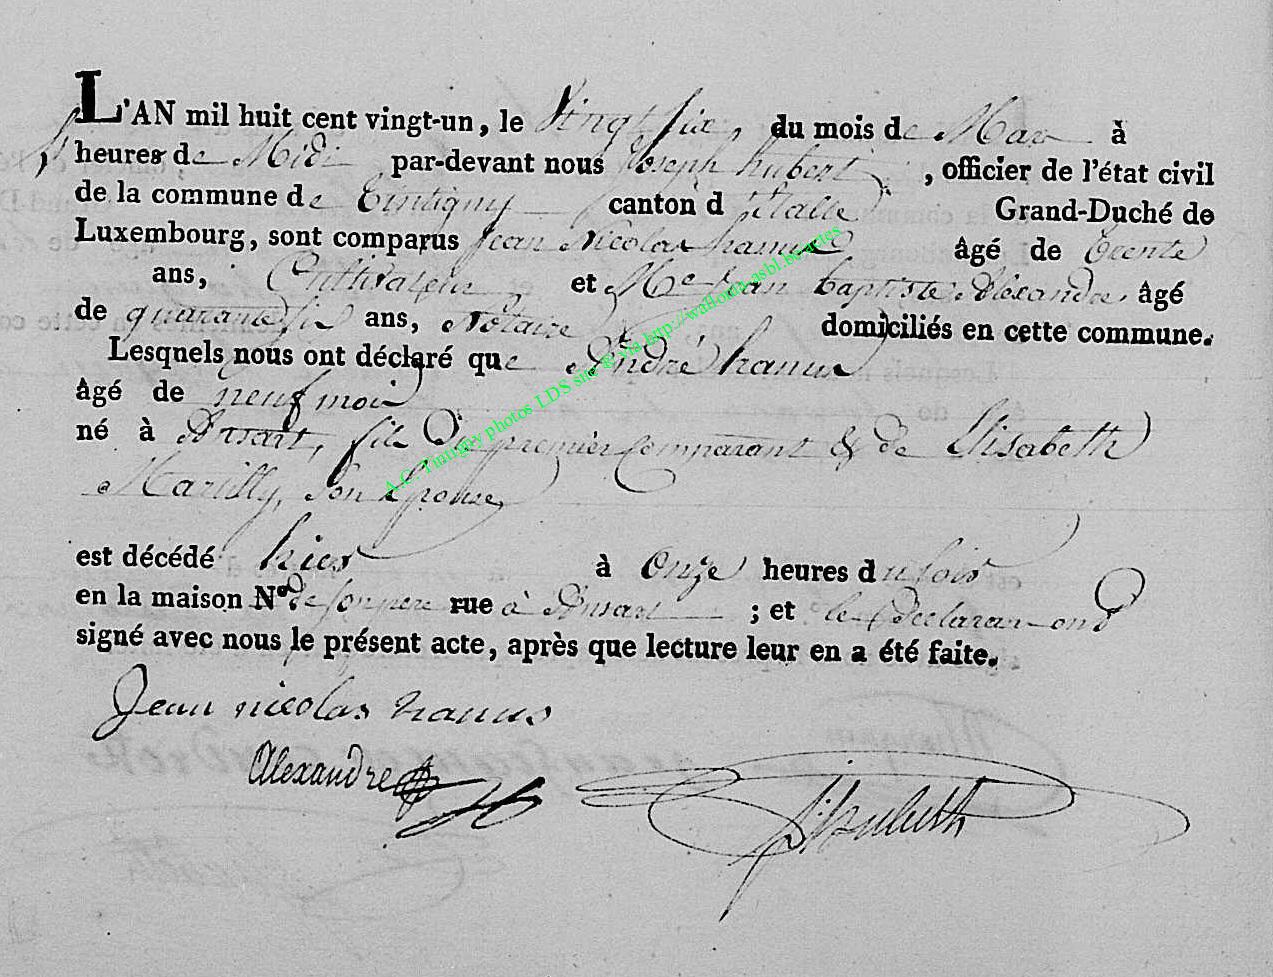 L'AN mil huit cent vingt-un, le Vingt six, du mois de Mars à
heures de Midi par-devant nous Joseph hubert, officier de l'état civil
de la commune de Tintigny canton d'Etalle Grand-Duché de
Luxembourg, sont comparus Jean Nicolas hanus âgé de trente
ans, Cultivateur et Me Jean baptiste Alexandre, âgé
de quarante six ans, Notaire domiciliés en cette commune.
Lesquels nous ont déclaré que André hanus
âgé de neuf mois
né à Ansart, fils du premier comparant & de Elisabeth
Marilly, son Epouse,
est décédé hier à onze heures du soir
en la maison No. de son père rue à Ansart ; et les Déclarans ond
signé avec nous le présent acte, après que lecture leur en a été faite.
Jean nicolas hanus
Alexandre
A.C. Tintigny photos LDS site & via http://wallonia-asbl.be/actes